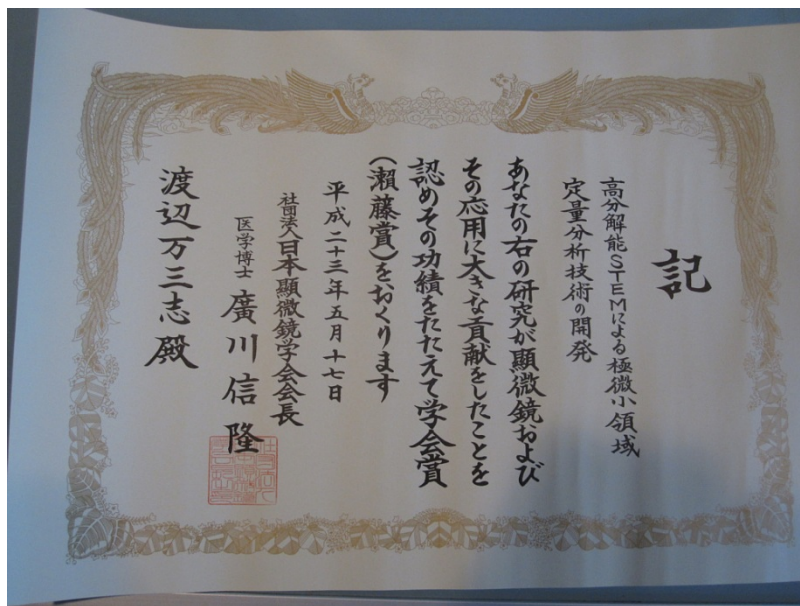 記
高分解能STEMによる極微小領域
定量分析技術の開発
あなたの右の研究が顕微鏡および
その応用に大きな貢献をしたことを
認めその功績をたたえて学会賞
(瀬藤賞)をおくります
平成二十三年五月十七日
社団法人日本顕微鏡学会会長
医学博士 廣川信隆
渡辺万三志殿